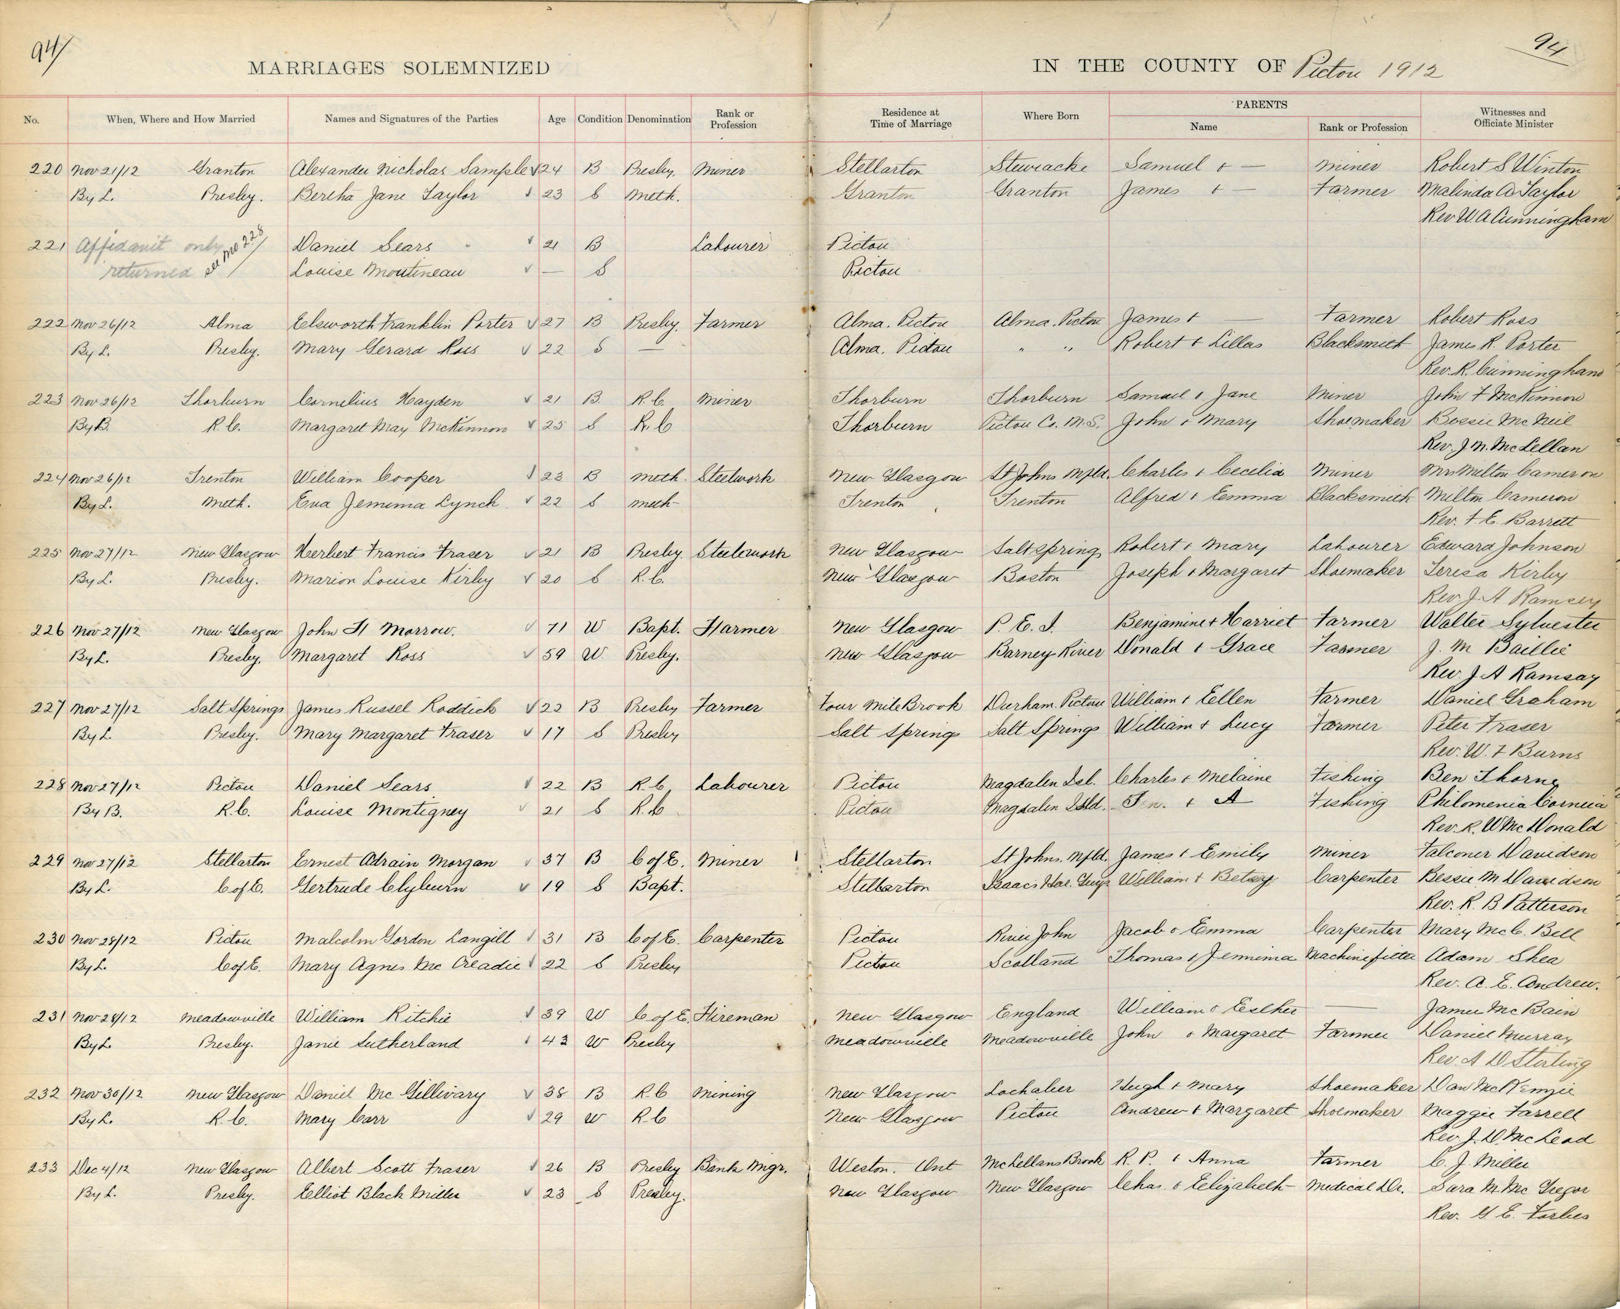 94/
94
MARRIAGES SOLEMNIZED IN THE COUNTY OF Pictou 1912
No. When, Where and How Married Names and Signatures of the Parties Age Condition Denomination Rank or Profession Residence at Time of Marriage Where Born PARENTS Name Rank or Profession Witnesses and Officiate Minister
220 Nov 21/12 Granton Alexander Nicholas Sample 24 B Presby. Miner Stellarton Stewiacke Samuel + — miner Robert S Winton
By L. Presby. Bertha Jane Taylor 23 S Meth. Granton Granton James + — Farmer Malinda A Taylor
Rev W. A Cunningham
221 Affidavit only Daniel Sears 21 B Labourer Pictou
returned see No 228/ Louise Moutineau — S Pictou
222 Nov 26/12 Alma Elsworth Franklin Porter 27 B Presby. Farmer Alma. Pictou Alma. Pictou James + — Farmer Robert Ross
By L. Presby. Mary Gerard Ross 22 S — Alma. Pictou " " Robert + Lillas Blacksmith James R. Porter
Rev. R. Cunningham
223 Nov 26/12 Thorburn Cornelius Hayden 21 B R.C Miner Thorburn Thorburn Samuel + Jane Miner John F McKinnon
By B. R.C. Margaret May McKinnon 25 S R.C Thorburn Pictou Co. N.S. John + Mary Shoemaker Bessie McNeil
Rev. J. N. McLellan
224 Nov 26/12 Trenton William Cooper 23 B Meth. Steelwork New Glasgow St Johns Nfld. Charles + Cecelia Miner Mrs Milton Cameron
By L. Meth. Eva Jemima Lynch 22 S Meth Trenton Trenton Alfred + Emma Blacksmith Milton Cameron
Rev. F E. Barrett
225 Nov 27/12 New Glasgow Herbert Francis Fraser 21 B Presby. Steelwork New Glasgow Salt Springs Robert + Mary Labourer Edward Johnson
By L. Presby. Marion Louise Kirby 20 S R.C. New Glasgow Boston Joseph + Margaret Shoemaker Teresa Kirby
Rev. J. A Ramsey
226 Nov 27/12 New Glasgow John H Morrow. 71 W Bapt. Farmer New Glasgow P. E. I. Benjamine + Harriet Farmer Walter Sylvester
By L. Presby. Margaret Ross 59 W Presby. New Glasgow Barney River Donald + Grace Farmer J. M Baillie
Rev. J A Ramsay
227 Nov 27/12 Salt Springs James Russel Roddick 22 B Presby Farmer Four Mile Brook Durham. Pictou William + Ellen Farmer Daniel Graham
By L Presby. Mary Margaret Fraser 17 S Presby Salt Springs Salt Springs William + Lucy Farmer Peter Fraser
Rev. W. F Burns
228 Nov 27/12 Pictou Daniel Sears 22 B R.C Labourer Pictou Magdalen Isl. Charles + Melaine Fishing Ben Thorne
By B. R.C. Louise Montigney 21 S R.C Pictou Magdalen Isld. + A Fishing Philomenia
Rev. R. W McDonald
229 Nov 27/12 Stellarton Ernest Adrain Morgan 37 B C of E. Miner Stellarton St Johns. Nfld. James + Emily Miner Falconer Davidson
By L. C of E. Gertrude Clyburn 19 S Bapt. Stellarton Isaacs Har. Guys William + Betsey Carpenter Bessie M Davidson
Rev. R. B Patterson
230 Nov 28/12 Pictou Malcolm Gordon Langill 31 B C of E. Carpenter Pictou River John Jacob + Emma Carpenter Mary McC. Bell
By L. C of E. Mary Agnes McCreadie 22 S Presby Pictou Scotland Thomas + Jemima Machine fitter Adam Shea
Rev. A. E. Andrew.
231 Nov 28/12 Meadowville William Ritchie 39 W C of E. Fireman New Glasgow England William + Esther — James McBain
By L. Presby. Janie Sutherland 43 W Presby Meadowville Meadowville John + Margaret Farmer Daniel Murray
Rev. A D Sterling
232 Nov 30/12 New Glasgow Daniel McGillivary 38 B R.C Mining New Glasgow Lochaber Hugh + Mary Shoemaker Dan McKenzie
By L. R.C. Mary Carr 29 W R.C New Glasgow Pictou Andrew + Margaret Shoemaker Maggie Farrell
Rev. J. D. McLeod
233 Dec 4/12 New Glasgow Albert Scott Fraser 26 B Presby Bank Mgr. Weston. Ont McLellans Brook R. P. + Anna Farmer C. J. Miller
By L. Presby. Elliot Black Miller 23 S Presby. New Glasgow New Glasgow Chas. + Elizabeth Medical Dr. Sara M. McGregor
Rev. G E. Forbes